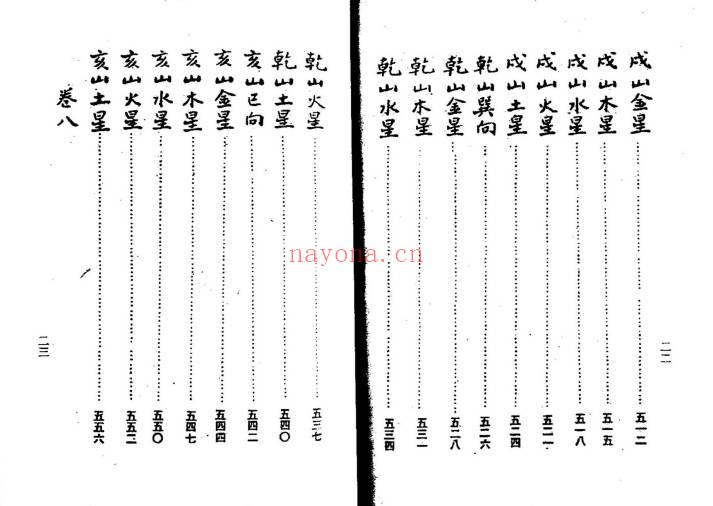 戌山金星……五一二
戌山木星……五一五
戌山水星……五一八
戌山火星……五二一
戌山土星……五二四
乾山巽向……五二六
乾山金星……五二八
乾山木星……五三一
乾山水星……五三四
二二
乾山火星……五三七
乾山土星……五四〇
亥山巳向……五四二
亥山金星……五四四
亥山木星……五四七
亥山水星……五五〇
亥山火星……五五二
亥山土星……五五六
卷八
二三
nayona.cn